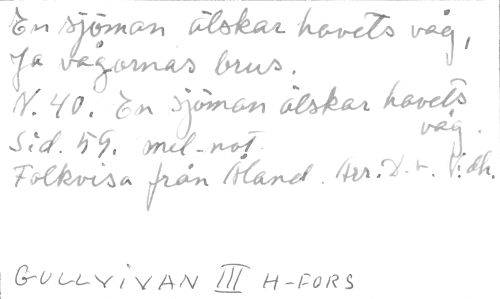 En sjöman älskar havets våg,
Ja vågornas brus.
N. 40. En sjöman älskar havets våg.
Sid. 59. mel-not.
Folkvisa från Åland. Arr.
GULLVIVAN III H-FORS